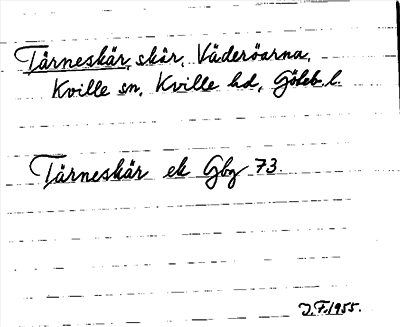 Tärneskär, skär, Väderöarna,
Kville sn, Kville hd, Göteb. l.
Tärneskär ek Gbg 73.
J.F. 1955.